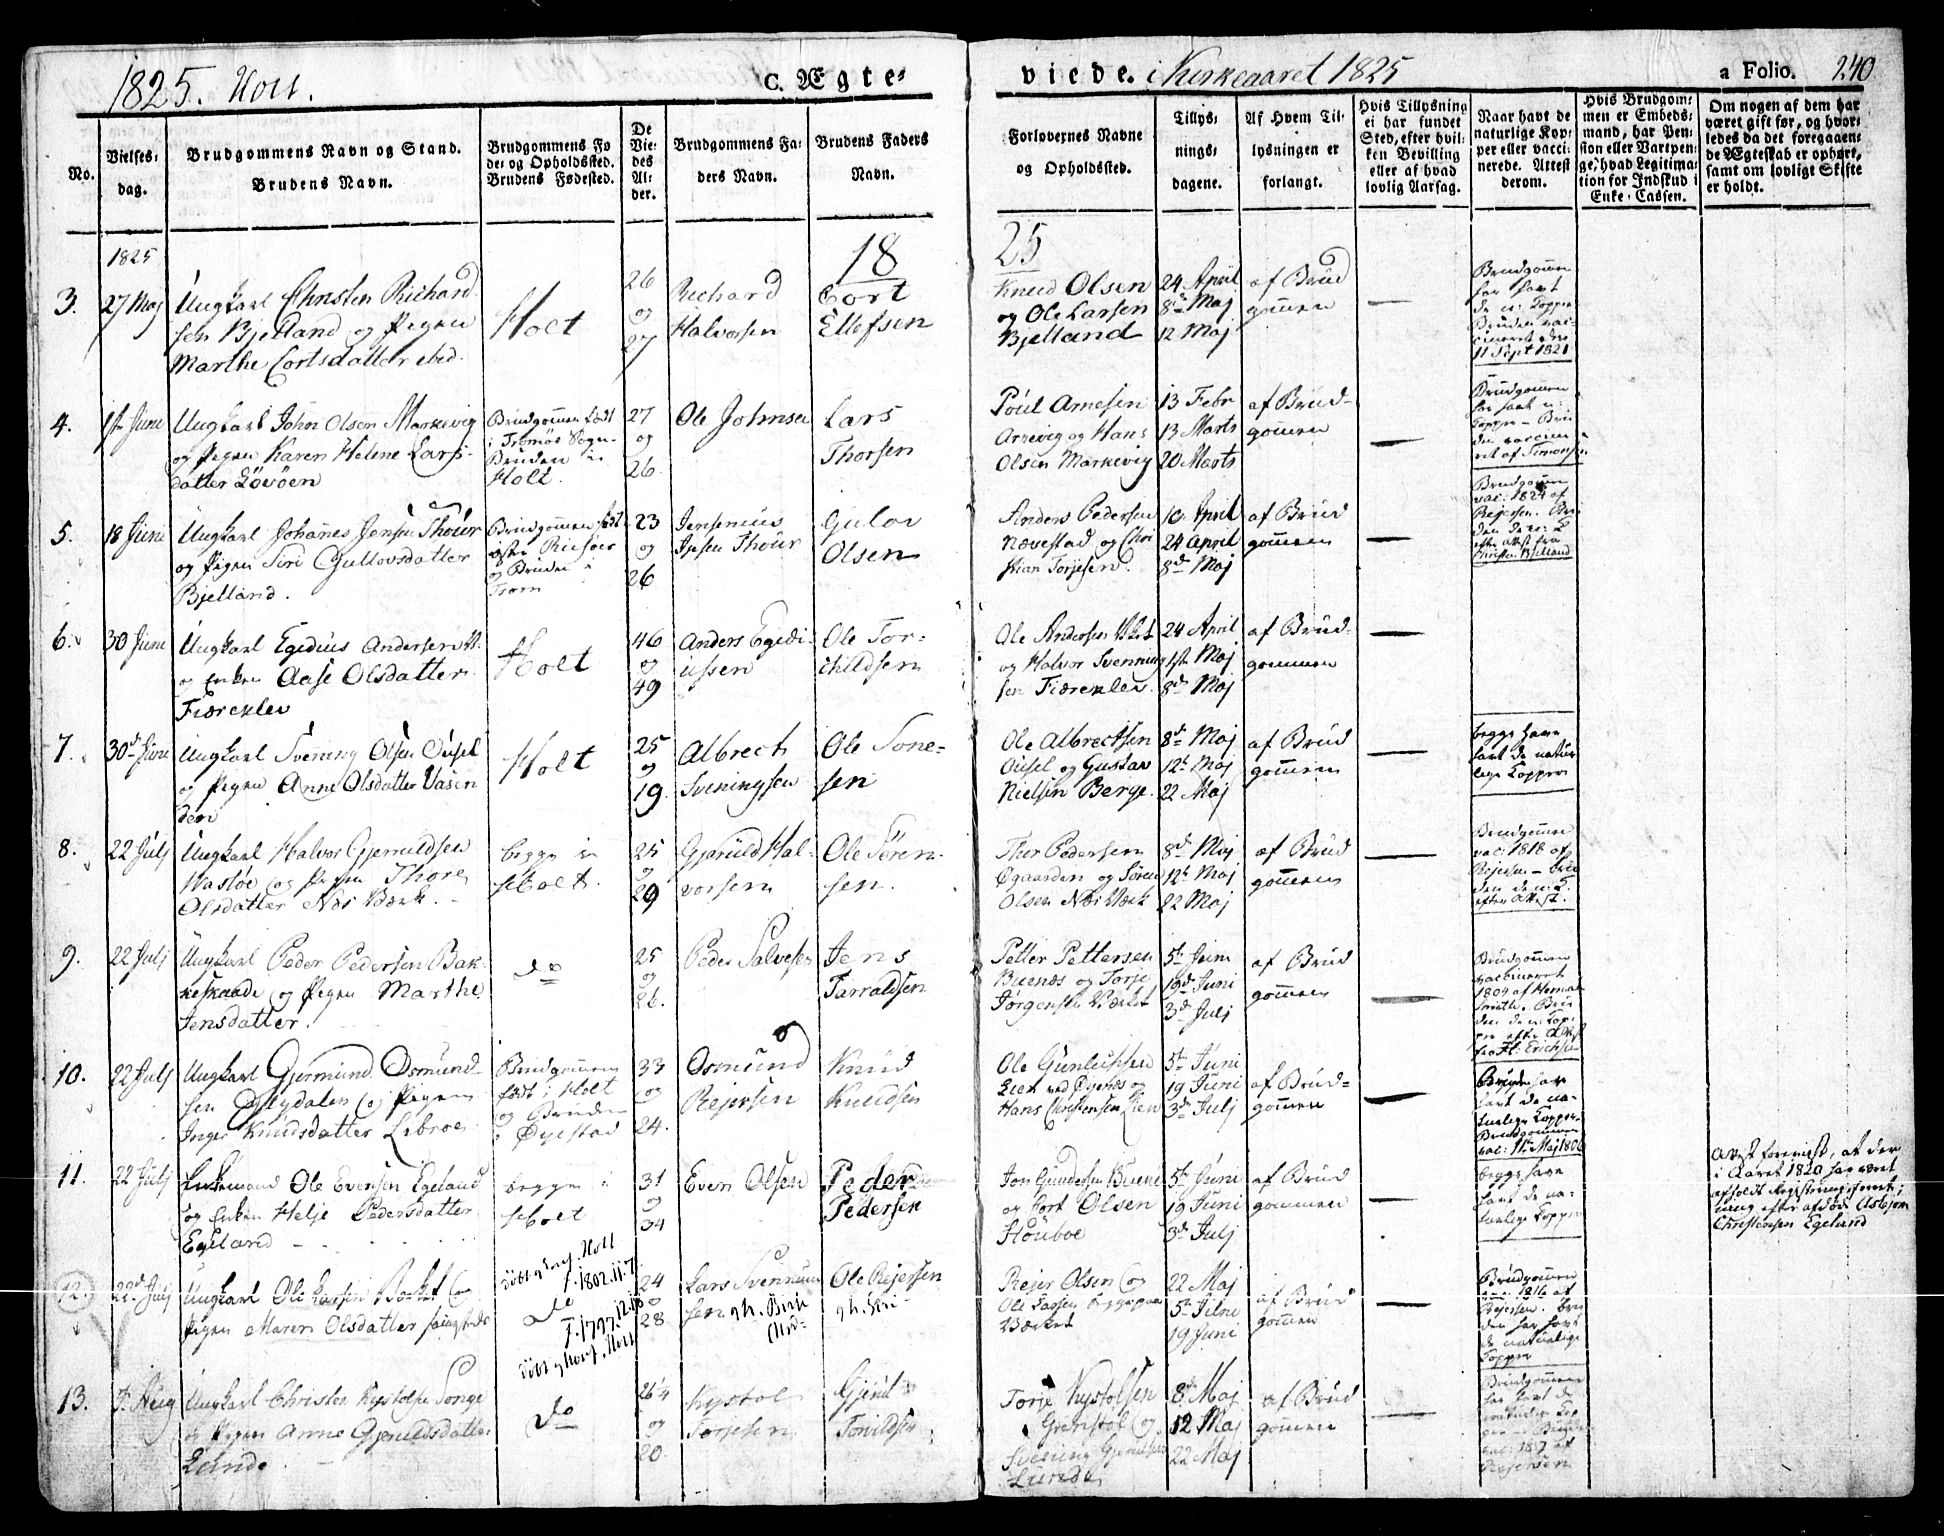 1825. Holt.
C. Ægte-
viede. i Kirkeaaret 1825
a Folio. 240
No.
Vielses-
dag.
Brudgommens Navn og Stand.
Brudens Navn.
Brudgommens Fø
de- og Opholdssted.
Brudens Fødested.
De
Vie-
des
Al-
der.
Brudgommens Fa-
ders Navn.
Brudens Faders
Navn.
Forlovernes Navne
og Opholdssted.
Tillys-
nings-
dagene.
Af Hvem Til-
lysningen er
forlangt.
Hvis Tillysning
ei har fundet
Sted, efter hvil-
ken Bevilling
eller af hvad
lovlig Aarsag.
Naar havt de
naturlige Kop-
per eller vacci-
nerede. Attest
derom.
Hvis Brudgom-
men er Embeds-
mand, har Pen-
sion eller Vartpen-
ge, hvad Legitima-
tion for Indskud i
Enke-Cassen.
Om nogen af dem har
været gift før, og hvor-
ledes da det foregaaen-
de Ægteskab er ophørt,
samt om lovligt Skifte
er holdt.
1825
18
25
3.
27 Maj
Ungkarl Christen Richard
sen Bjelland og Pigen
Marthe Cortsdatter ibid.
Holt
26
og
27
Richard
Halvorsen
Cort
Ellefsen
Knud Olsen
og Ole Larsen
Bjelland
24 April
8de Maj
12 Maj
af Brud
gommen
Brudgommen
har havt
de n: Kopper
Bruden vac-
cineret den
11 Sept 1821
4.
1st Juni
Ungkarl John Olsen Markevig
og Pigen Karen Helene Lars-
datter Løvøen
Brudgommen født
i Tromøe Sogn
Bruden i
Holt.
27
og
26.
Ole Johnsen
Lars
Thorsen
Poul Arnesen
Arnevig og Hans
Olsen Markevig
13 Febr
13 Marts
20 Marts
af Brud-
gommen
Brudgommen
har havt n:
Kopper - Bru
den vaccine
ret af Simonsen
5.
18 Juni
Ungkarl Johanes Jensen Thour
og Pigen Siri Gullovsdatter
Bjelland.
Brudgommen født
øster Riisøer
og Bruden i
Trom
23
og
26
Jensenius
Jensen Thour
Gulov
Olsen
Anders Pedersen
Nævestad og Chri
stian Torjesen.
10 April
24 April
8de Maj
af Brud
gommen
Brudgommen
vac: 1824 af
Rejersen. Bru
den de n: K
efter Attest fra
Christen Bjelland
6.
30 Juni
Ungkarl Egidius Andersen
og Enken Aase Olsdatter
Fiæreklev
Holt
46
og
49
Anders Egidi-
ussen
Ole Tor-
childsen
Ole Andersen
og Halvor Svenning
sen Fiæreklev.
24 April
1ste Maj
8de Maj
af Brud-
gommen
7.
30de Juni
Ungkarl Svening Olsen Ousel
og Pigen Anne Olsdatter Vasen
den
Holt
25
og
19.
Albrech
Sveningsen
Ole Tone-
sen
Ole Albrectsen
Ousel og Gustav
Nielsen Berge.
8de Maj
12te Maj
22 Maj
af Brud
gommen
begge have
havt de natur
lige Kopper
8.
22 Julj
Ungkarl Halvor Gjeruldsen
Wastøe og Pigen Thore
Olsdatter Næs Værk.
begge i
Holt.
25
og
29
Gjeruld Hal-
vorsen
Ole Tøren-
sen.
Thor Pedersen
Øgaarden og Søren
Olsen Næs Værk
8de Maj
12te Maj
22 Maj
af Brud
gommen
Brudgommen
vac: 1818 af
Rejersen - Bru
den de n: K.
efter Attest.
9.
22 Julj
Ungkarl Peder Pedersen Bak-
keskaade og Pigen Marthe
Jensdatter.
do
25
og
26.
Peder Salvesen
Jens
Tarraldsen
Petter Pettersen
Buenæs og Torje
Jørgensen Værket
5te Juni
19de Juni
3de Julj
af Brud
gommen
Brudgommen
vaccineret
1804 af Herman
Smith. Bru
den de n: Kop-
per efter Attest
fra H: Erichsen
10.
22 Julj
Ungkarl Gjermund Osmund-
sen Glydalen og Pigen
Inger Knudsdatter Libroe
Brudgommen
født i Holt
og Bruden
i Øyestad
33
og
24.
Osmund
Rejersen
Knud
Knudsen
Ole Gunlufsen
Lien ved Øyenæs og
Hans Christensen Lien
5te Juni
19 Juni
3de Julj
af Brud-
gommen
Bruden har
havt de na-
turlige Kopper.
Brudgommen
vac: 11te Maj 1806
11.
22 Julj
Enkemand Ole Evensen Egeland
og Enken Helje Pedersdatter
Egeland
begge i
Holt
31
og
34
Even Olsen
Peder
Pedersen
Jon Gundersen Buene
og Cort Olsen
Houboe
5te Juni
19 Juni
3de Julj
af Brud
gommen
begge have
havt de na-
turlige Kopper
Attest forevist, at der
i Aaret 1820 har været
afholdt Registringsforret-
ning efter afdøde Asbjørn
Christensen Egeland
12.
22de Julj
Ungkarl Ole Larsen Værket og
Pigen Maren Olsdatter
døbt og konf. Holt
f. 1802.11.7.
do
f. 1797.12.18
døbt og konf. Holt
24
og
28
Lars Svennum
sen gh. Berke
Ole Rejersen
gh.
Rejer Olsen og
Ole Larsen begge paa
Værket
22 Maj
5te Juni
19 Juni
af Brud
gommen
Brudgommen
vac: 1816 af
Rejersen. Bru
den har havt
de naturlige
Kopper
13.
Ungkarl Christen Kystolsen Songe
og Pigen Anne Gjeruldsdatter
Lunde.
do
26¼
og
20.
Kystol
Torjesen
Gjerul
Tonildsen
Torje Kystolsen
Grenstøl og
Svening Gjeruldsen
Lunde
8de Maj
12 Maj
22 Maj
af Brud
gommen
Brudgommen
har havt de
naturlige Kop
per - Bruden
vac: 1817 af
Rejersen